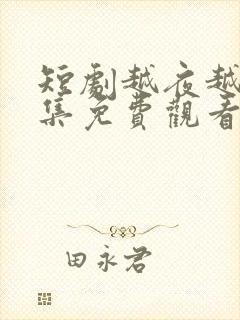 短劇越夜越
集免費觀看
田永君